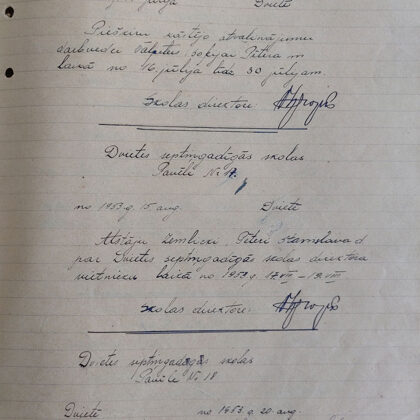 jūlijā Dvietē
Piešķiru kārtējo atvaļinājumu
darbvedei Valentei Sofijai Pētera m.
laikā no 16. jūlija līdz 30 jūlijam.
Skolas direktore:
Dvietes septiņgadīgās skolas
Pavēle Nr 17.
no 1953.g. 15 aug. Dvietē
Atstāju Zemlicki Pēteri Staņislava d
par Dvietes septiņgadīgās skolas direktora
vietnieku laikā no 1953.g. 17.VIII – 19.VIII
Skolas direktore:
Dvietes septiņgadīgās skolas
Pavēle Nr 18
Dvietē no 1953.g. 20 aug.